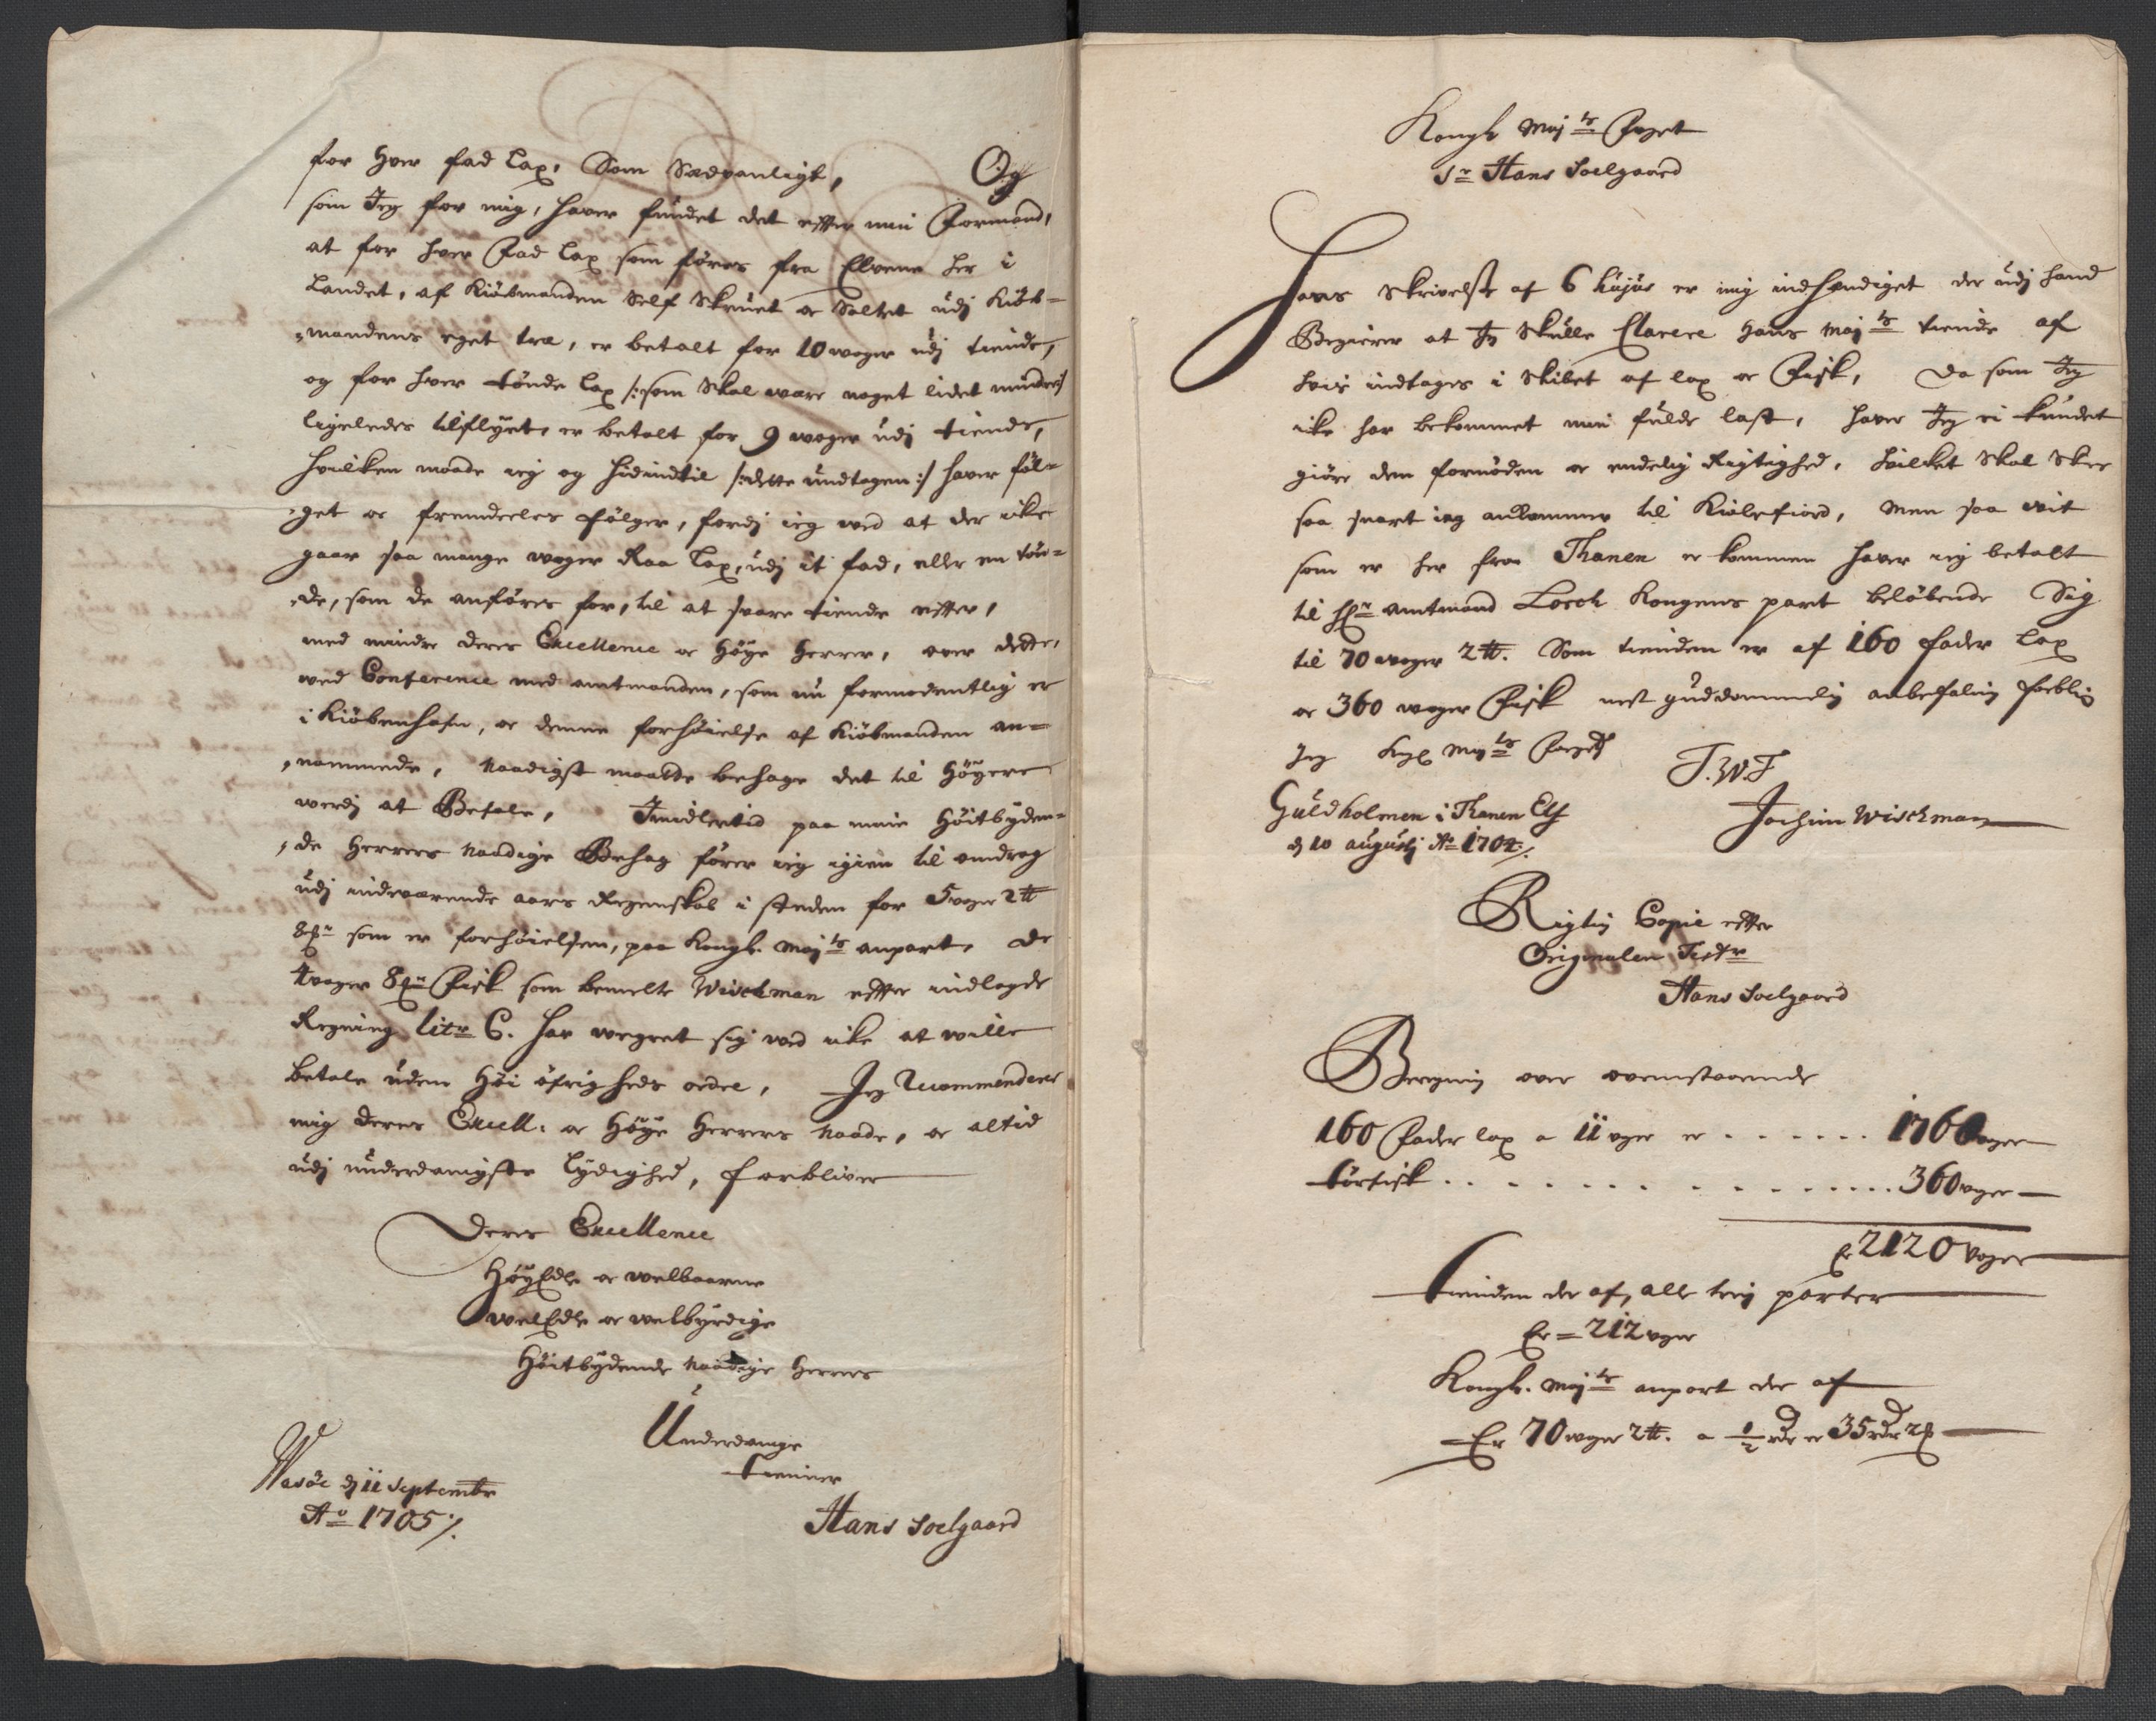 for hver fad Lax, Som Sædvanligt, Og
som Jeg for mig, haver fundet det efter min Formand,
at for hver Fad Lax som føres fra Elvene her i
Landet, af Kiöbmanden Self Skrüet og Saltet udj Kiöb=
=mandens eget træ, er betalt for 10 woger udj tiende,
og for hver tönde Lax /: som Skal være noget lidet mindre :/
ligeledes tilflyet, er betalt for 9 woger udj tiende,
hvilken maade ieg og hidindtil /: dette undtagen :/ haver föl=
=get og fremdeeles fölger, fordj ieg ved at der icke
gaar saa mange woger Raa Lax, udj it fad, eller en tön=
=de, som de anföres for, til at svare tiende efter,
med mindre deres Excellence og Höye Herrer, over dette,
ved Conference med amtmanden, som nu formodentlig er
i Kiöbenhafn, og denne forhöielse af Kiöbmanden an=
=nammede, Naadigst maatte behage det til Höyere
værdj at Befale, Imidlertid paa mine Höitbyden=
=de Herrers Naadige Behag förer ieg igien til omdrag
udj indeværende aars Regenskab i steden for 5 woger 2 ℔
som er forhöielsen, paa Kongl. Maj ts anpart, de
4 woger 8 Fisk som bemelte Wischman efter indlagde
Regning Litr C. har vegret sig ved icke at wille
betale uden Höi öfrigheds ordre, Jeg Recommenderer
mig deres Excell: og Höye Herrers Naade, og altid
udj underdanigste Lydighed, forbliver
Deres Excellence
HöyEdle og welbaarne
WelEdle og welbyrdige
Höitbydende Naadige Herrers
Underdanige
tienner
Wadöe dj 11 Septembr
Ao 1705 /.
Hans Soelgaard
Kongl Maj ts Foget
Sr Hans Soelgaard
Hans Skrivelse af 6 hujus er mig indhændiget der udj hand
Begierer at Jeg Skulle Clarere Hans Maj ts tiende af
hvis indtages i Skibet af lax og Fisk, Da som Jeg
icke har bekommet min fulde last, haver Jeg ei kundet
giöre dem fornöden og endelig Rigtighed, hvilket Skal Skee
saa snart ieg ankommer til Kiölefiord, Men saa vit
som er her fra Thanen er kommen haver ieg betalt
til Hr amtmand Lorch Kongens part belöbende Sig
til 70 woger 2 ℔. Som tienden er af 160 fader Lax
og 360 woger Fisk nest guddommelig anbefaling forblir
Jeg Kongl Maj ts Fogets
T. W. T
Guldholmen i Thanen Elf
dj 10 augustj Ao 1704 /.
Jochim Wischman
Rigtig Copie efter
Originalen Test
Hans Soelgaard
Beregning over ovenstaaende
160 Fader lax a 11 woger er . . . . . . 1760 woger
törfisk . . . . . . . . . . . . . . 360 woger
Er 2120 Woger
tienden der af, alle trej parter
Er = 212 woger
Kongl. Maj ts anpart der af
Er 70 woger 2 ℔. a ½ rdr er 35 rdr 2 ß